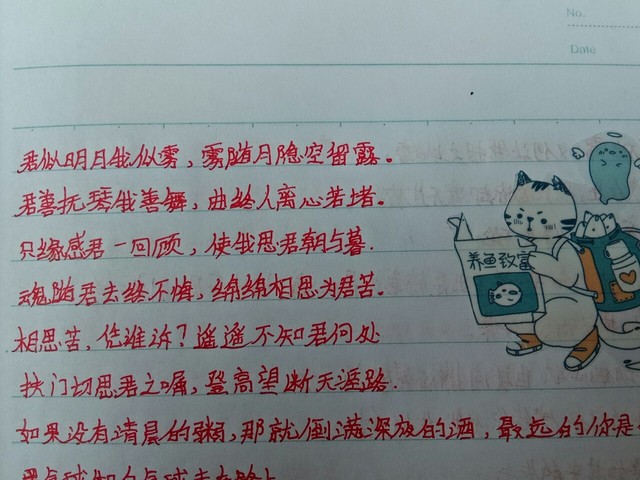 No.
Date
君似明月我似雾，雾随月隐空留露。
君善抚琴我善舞，曲终人离心若堵。
只缘感君一回顾，使我思君朝与暮.
魂随君去终不悔，绵绵相思为君苦。
相思苦，凭谁诉？遥遥不知君何处
扶门切思君之嘱，登高望断天涯路.
如果没有清晨的粥，那就倒满深夜的酒，最远的你是
养鱼致富